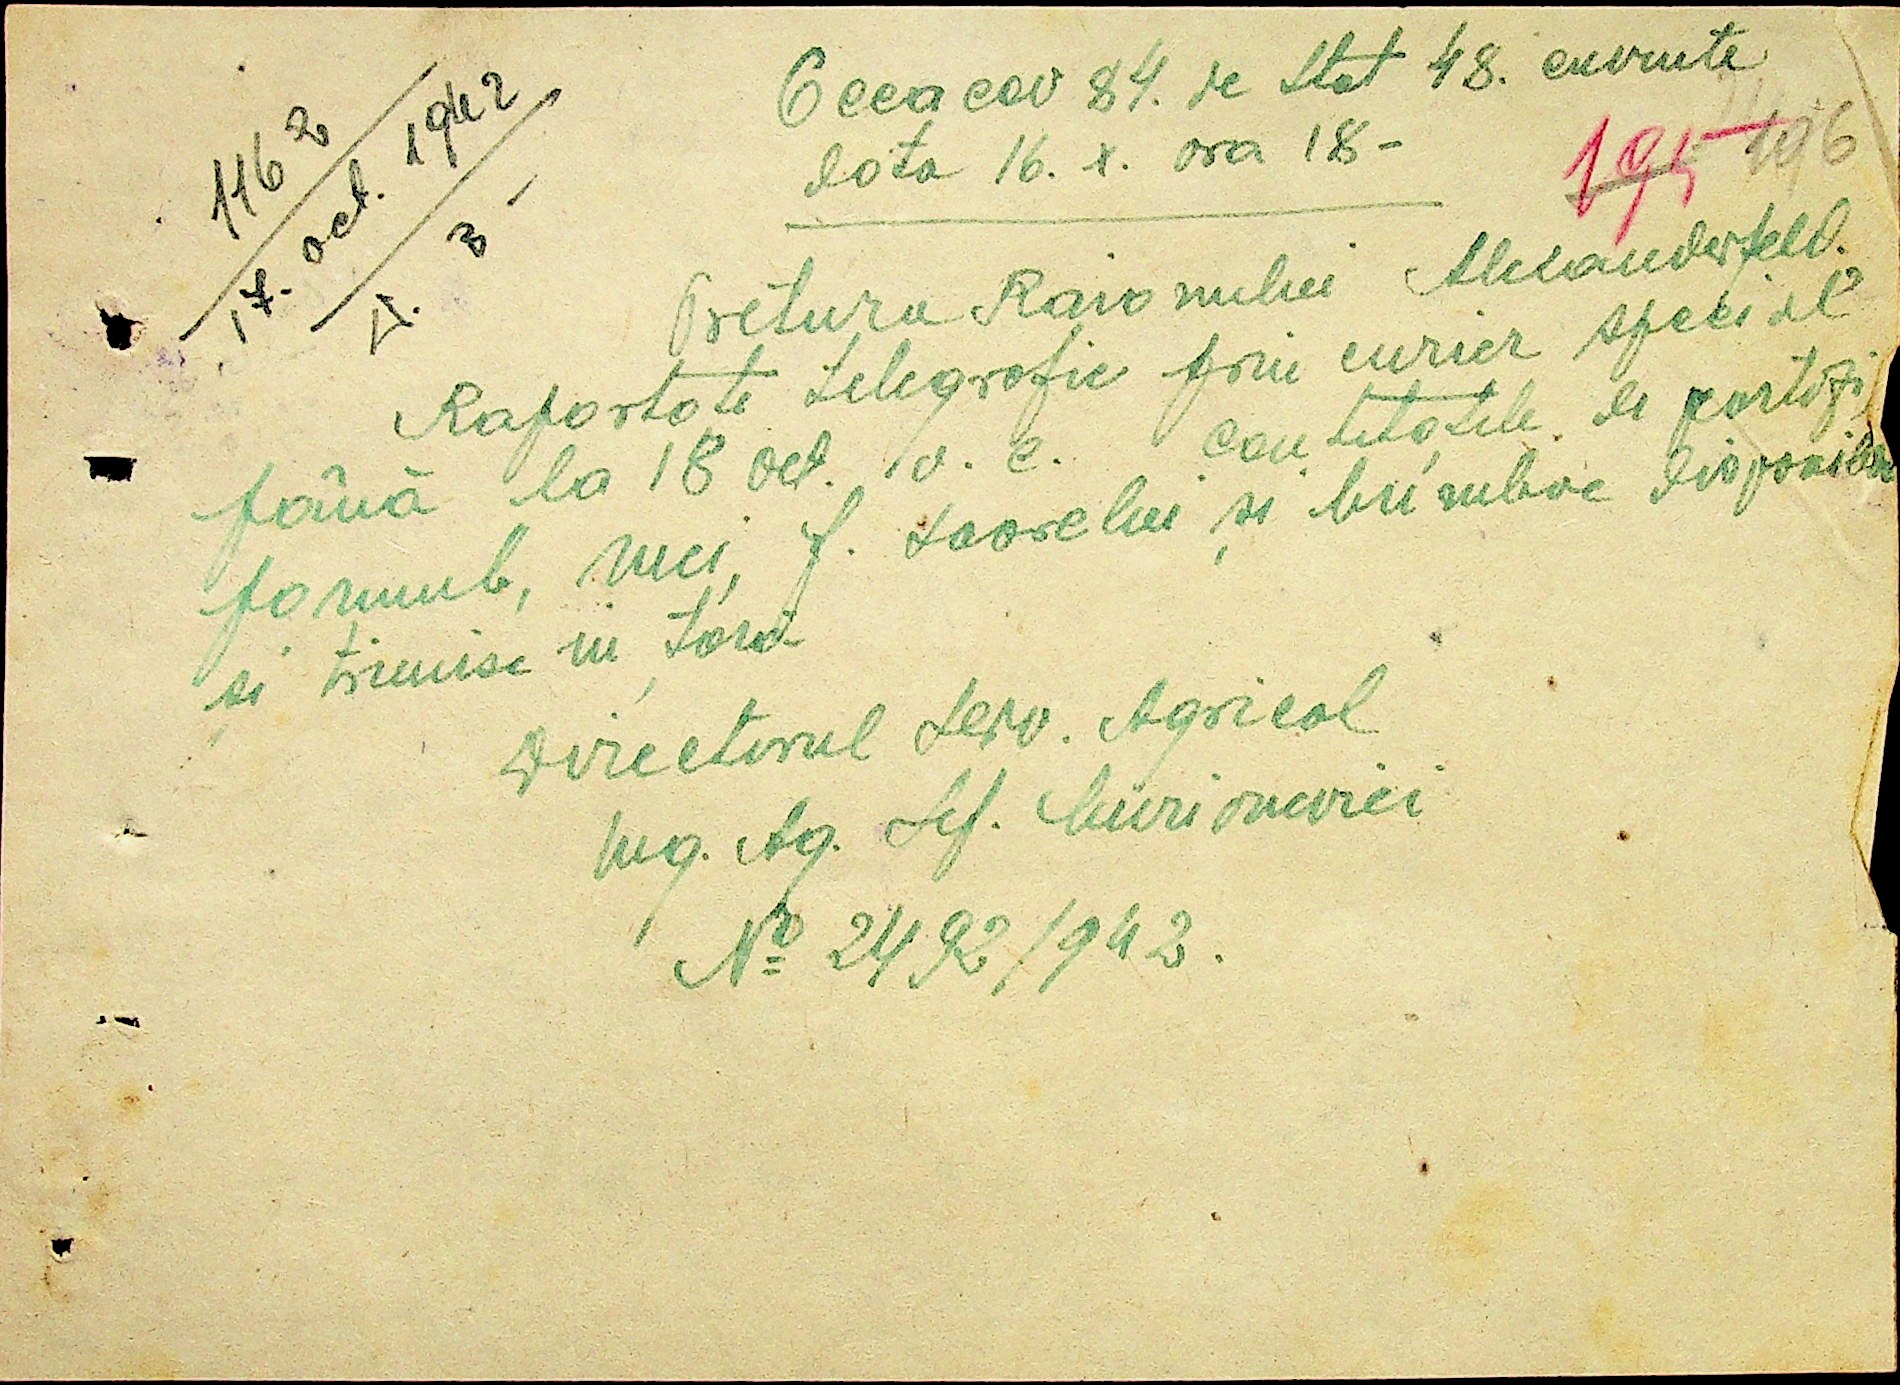 1162
17. oct. 1942
V. 3 -
Oceacov 84. de Stat 48. cuvinte
data 16. x. ora 18 -
195 196
Pretura Raionului Alexanderfeld.
Raportati telegrafic prin curier special
până la 18 oct. a. c. cantitatile de partizi,
porumb, nuci, f. soarelui și bumbac disponibile
și trimise in țară
Directorul Serv. Agricol
Ing. Ag. Sef.
Nº 2492/942.